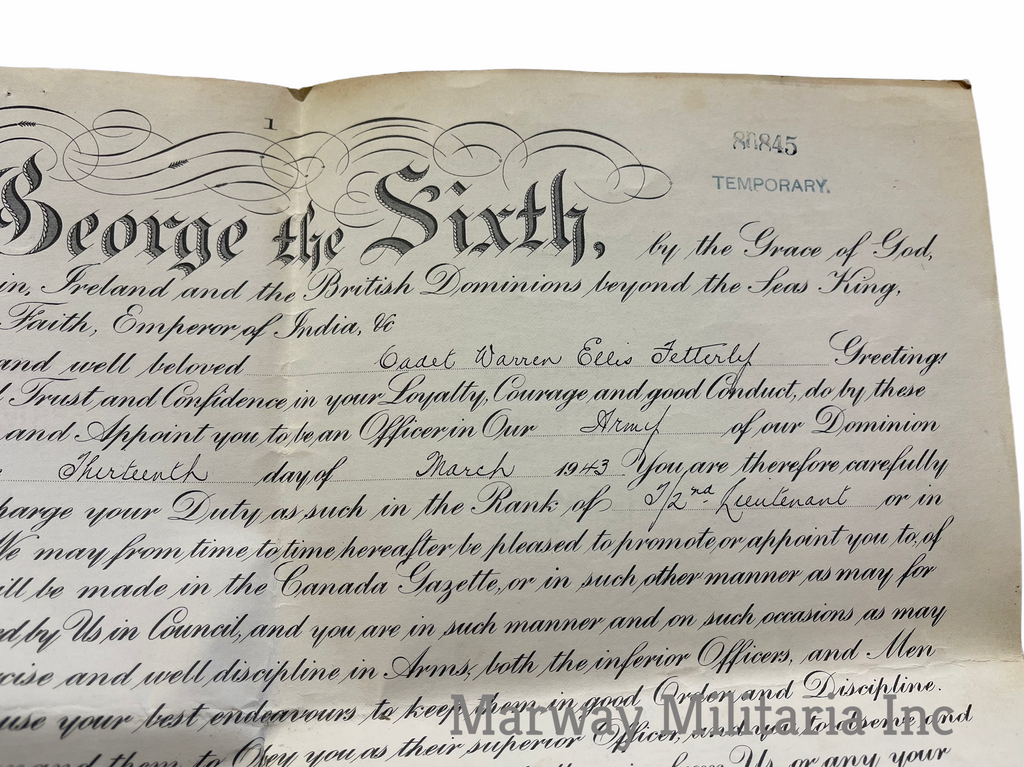 1
80845
TEMPORARY.
George the Sixth,
by the Grace of God,
in, Ireland and the British Dominions beyond the Seas King,
Faith, Emperor of India, &c
and well beloved Cadet Warren Ellis Fetterly Greeting:
Trust and Confidence in your Loyalty, Courage and good Conduct, do by these
and Appoint you to be an Officer in Our Army of our Dominion
Thirteenth day of March 1943 You are therefore carefully
harge your Duty as such in the Rank of T/2nd Lieutenant or in
We may from time to time hereafter be pleased to promote, or appoint you to, of
ill be made in the Canada Gazette, or in such other manner as may for
ed by Us in Council, and you are in such manner and on such occasions as may
cise and well discipline in Arms, both the inferior Officers, and Men
use your best endeavours to keep them in good Order and Discipline.
and them to Obey you as their superior Officer, and you to observe and
from Us, or any your
Marway Militaria Inc